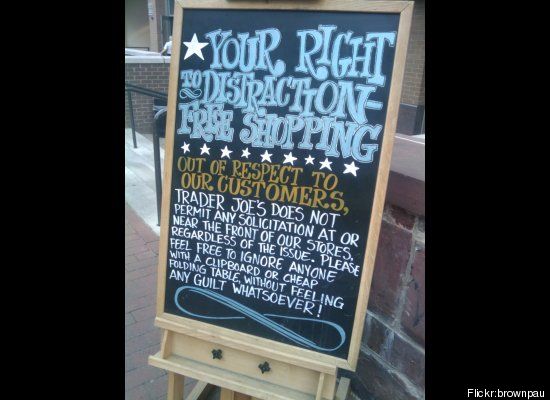 YOUR RIGHT
TO DISTRACTION-
FREE SHOPPING
OUT OF RESPECT TO
OUR CUSTOMERS,
TRADER JOE'S DOES NOT
PERMIT ANY SOLICITATION AT OR
NEAR THE FRONT OF OUR STORES,
REGARDLESS OF THE ISSUE. PLEASE
FEEL FREE TO IGNORE ANYONE
WITH A CLIPBOARD OR CHEAP
FOLDING TABLE, WITHOUT FEELING
ANY GUILT WHATSOEVER!
Flickr:brownpau